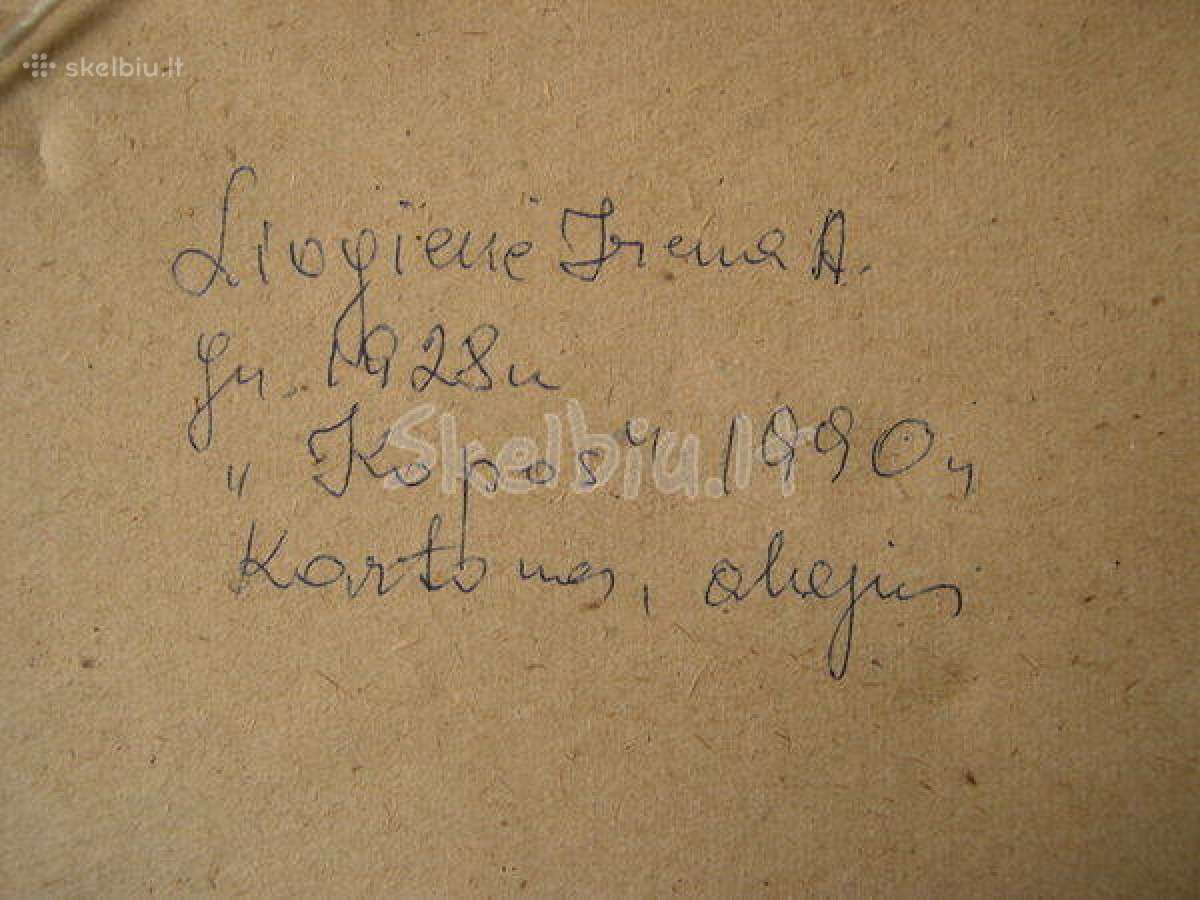 skelbiu.lt
Liogienė Irena A.
gm. 1928m
„Kopos" 1990,
Skelbiu.lt
Kartonas, aliejus